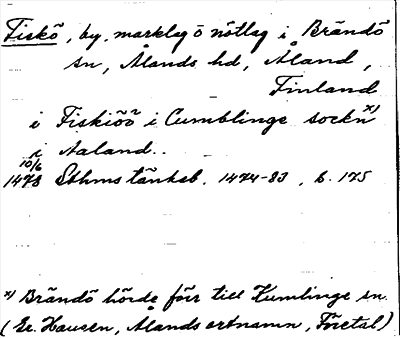 Fiskö, by, marklag o nötlag i Brändö
sn, Ålands hd, Åland,
Finland
i Fiskiöö i Cumblinge sockn x)
i Aaland..
10/6
1478 Sthms tänkeb. 1474-83, b. 175
x) Brändö hörde förr till Kumlinge sn.
(Gr. Hausen, Ålands ortnamn, Företal)